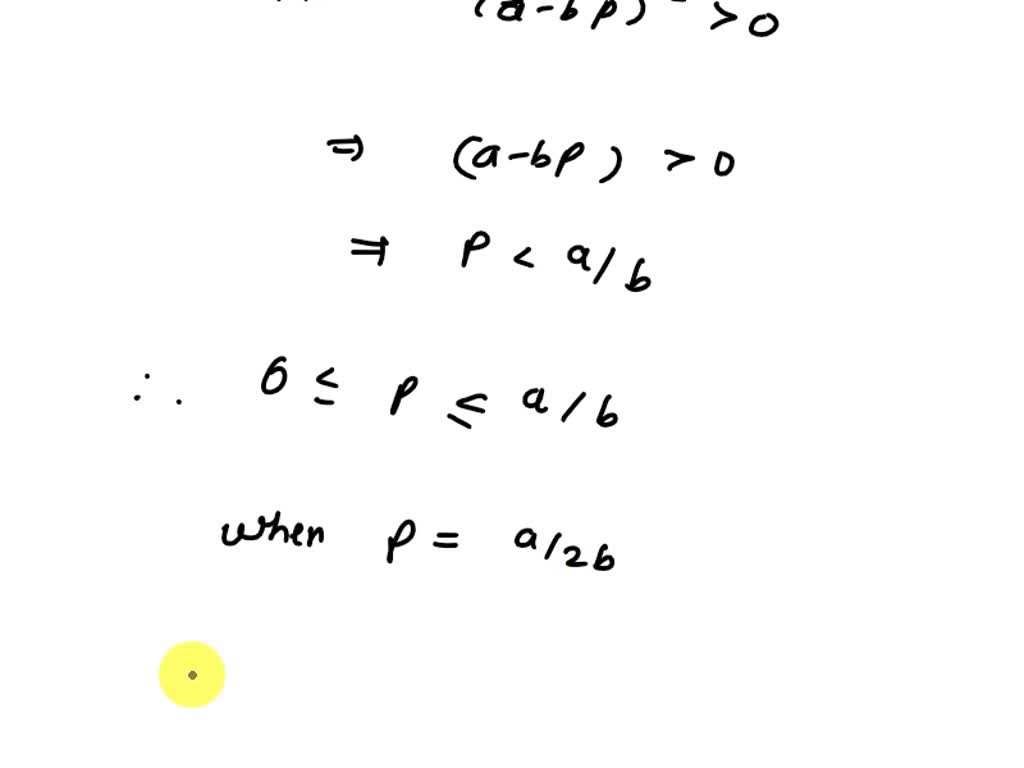 (a-bp) > 0
⇒ (a-bp) > 0
⇒ P < a/b
∴ 0 ≤ P ≤ a/b
when P = a/2b